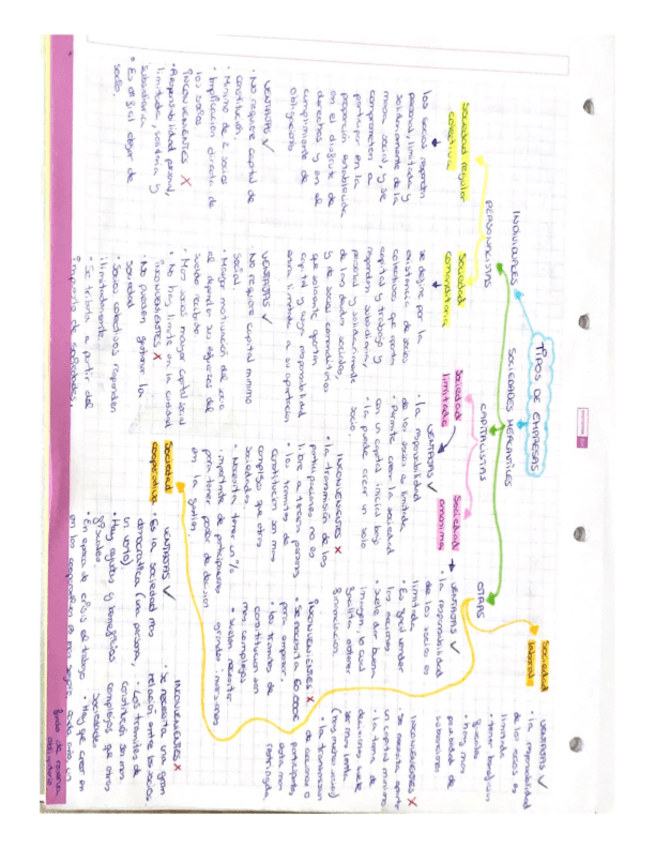 TIPOS DE EMPRESAS
INDIVIDUALES
SOCIEDADES MERCANTILES
PERSONALISTAS
CAPITALISTAS
OTRAS
Sociedad regular
colectiva
los socios responden
personal, ilimitada y
solidariamente de la
masa social y se
comprometen a
participar en la
proporción establecida
en el disfrute de
derechos y en el
cumplimiento de
obligaciones
VENTAJAS ✓
• No requiere capital de
constitución.
• Mínimo de 2 socios
• Implicación directa de
los socios
INCONVENIENTES X
• Responsabilidad personal,
ilimitada, solidaria y
subsidiaria
• Es difícil dejar de
socio.
Sociedad
comanditaria
se define por la
existencia de socios
colectivos que aportan
capital y trabajo y
responden subsidiaria,
personal y solidariamente
de las deudas sociales,
y de socios comanditarios
que solamente aportan
capital y cuya responsabilidad
estará limitada a su aportación
VENTAJAS ✓
No requiere capital mínimo
social.
• Mayor motivación del socio
al depender sus
• Más socios mayor capital social
• No hay límite en la cantidad
INCONVENIENTES X
• No pueden gestionar la
sociedad
• Socios colectivos responden
ilimitadamente
• Se tributa a partir del
impuesto de sociedades.
Sociedad
limitada
VENTAJAS ✓
• la responsabilidad
de los socios es limitada
• Permite crear la sociedad
con un capital inicial bajo
• la puede crear un solo
socio.
INCONVENIENTES X
• la transmisión de las
participaciones no es
libre a terceras personas
• los trámites de
constitución son más
complejos que otras
sociedades.
• Necesita tener un %
importante de participaciones
para tener poder de decisión
en la gestión.
Sociedad
anónima
VENTAJAS ✓
• la responsabilidad
de los socios es
limitada.
• Es fácil vender
las acciones
• Suele dar buena
imagen, lo cual
facilita obtener
financiación.
INCONVENIENTES X
• Se necesita 60.000€
para empezar.
• los trámites de
constitución son
más complejos
• Suelen necesitar
Sociedad
laboral
VENTAJAS ✓
• la responsabilidad
de los socios es
limitada
• Tener
• Hay más
de
subvenciones
INCONVENIENTES X
• Se necesita aportar
un capital mínimo
• la toma de
decisiones suele
ser más lenta
(hay muchos socios)
• la transmisión
de acciones o
participaciones
está más
restringida
Sociedad
cooperativa
VENTAJAS ✓
• Es la sociedad más
democrática (una persona,
un voto).
• Hay ayudas y beneficios
fiscales.
• En época de crisis el trabajo
en las cooperativas es más seguro
INCONVENIENTES X
• Se necesita una gran
relación entre los socios.
• Los trámites de
constitución son más
complejos que otras
sociedades
• Hay que crear en
cada año un
fondo de reserva
obligatorio